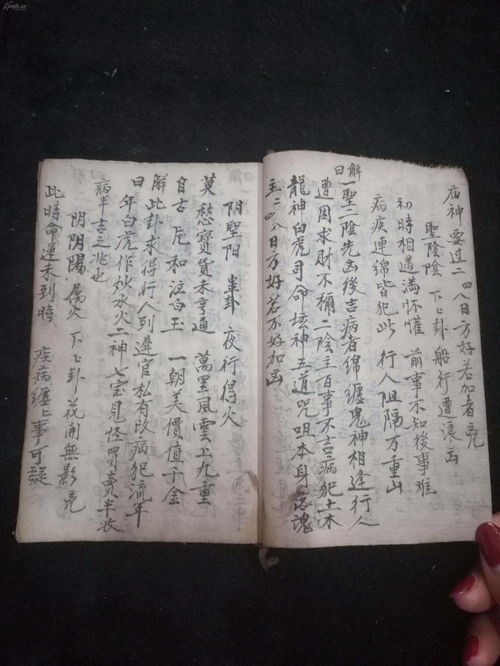 庙神要过二四八日方好若加者兇
聖陰陰 下下卦 船行遭浪凶
初時相遇滿怀懽 前事不知後事难
病疾連綿皆犯此 行人阻隔万重山
解曰 一聖二陰先凶後吉病者綿纏鬼神相逢行人
遭困求財不稱二陰主百事不吉病犯土木
龍神白虎司命坛神五道咒咀本身落魂
主二四八日方好若不好加凶
阴聖阳 卦 夜行得火
莫愁寳貨未亨通 萬里風雲上九重
自古 和泣白玉 一朝美價值千金
解曰 此卦求得行人到遲官私有改病犯流年
年白虎作 水火二神七宝見怪胃賣半衣
病半吉之兆也
阴阴陽 属火 下下卦 花開無影兇
此時命運未到時 疾病纏上事可疑